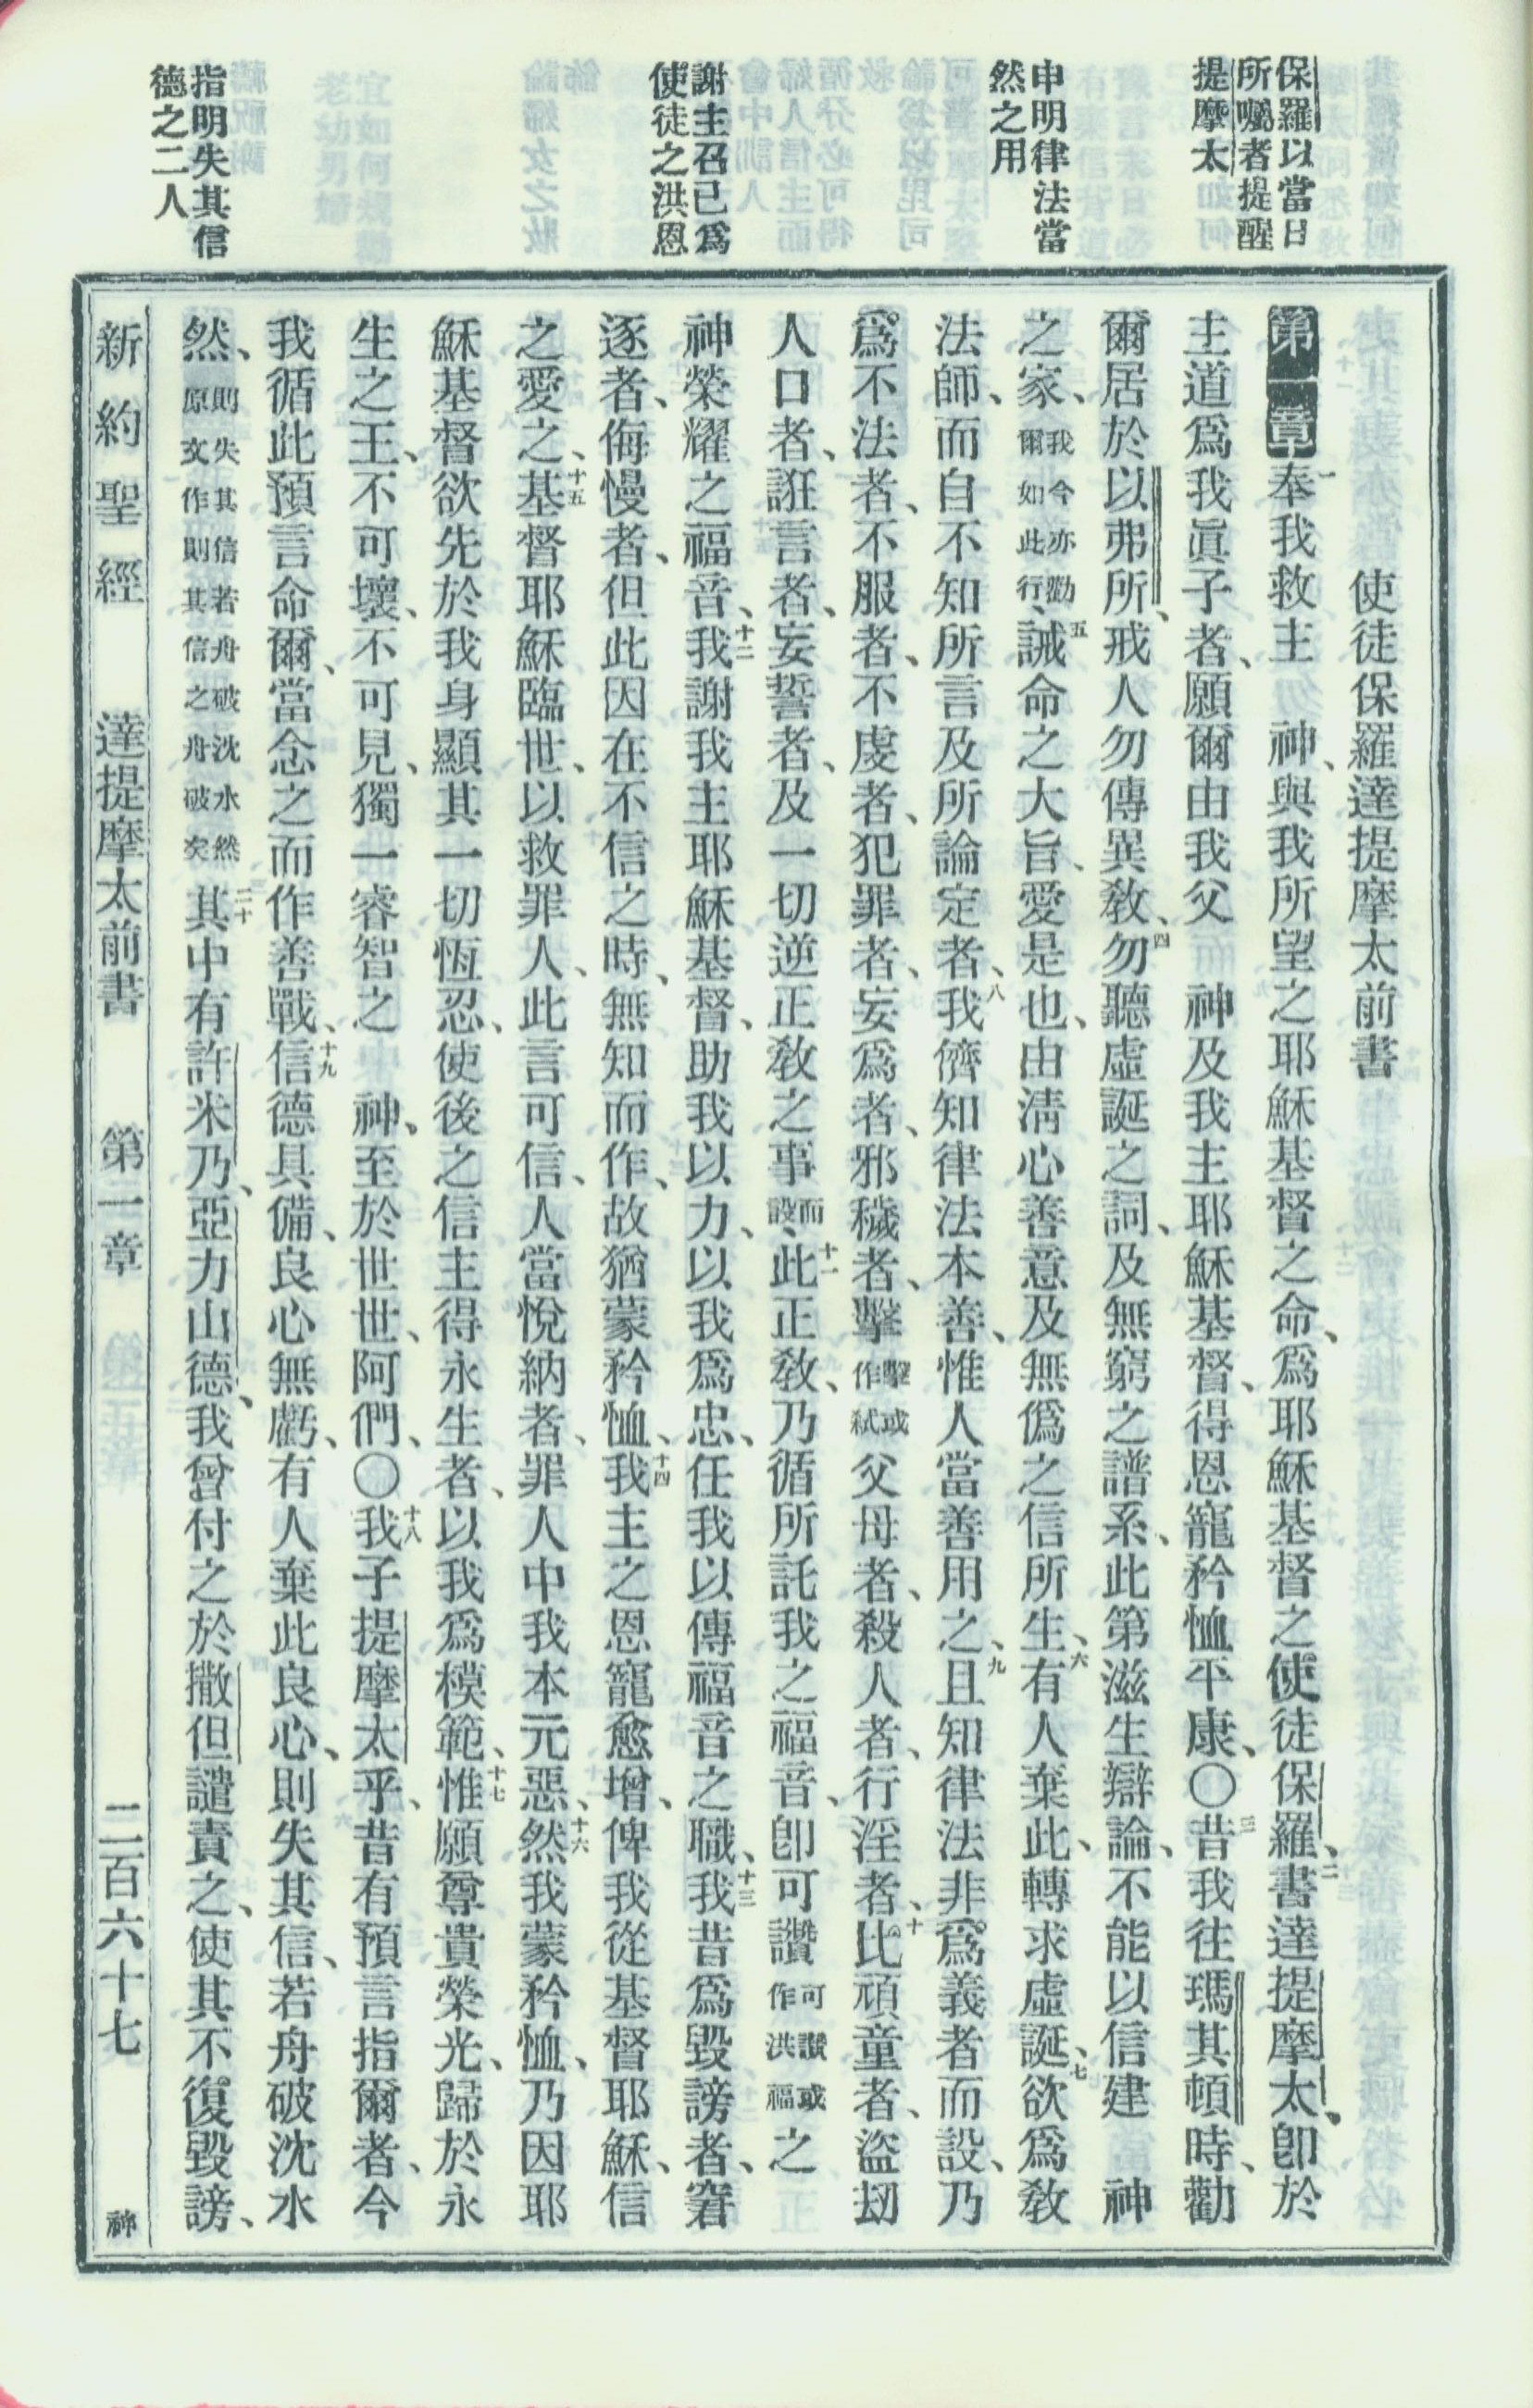 保羅以當日
所囑者提醒
提摩太
申明律法當
然之用
謝主召己爲
使徒之洪恩
指明失其信
德之二人
使徒保羅達提摩太前書
第一章 一奉我救主 神、與我所望之耶穌基督之命、爲耶穌基督之使徒保羅、二書達提摩太、卽於
主道爲我眞子者、願爾由我父 神及我主耶穌基督、得恩寵矜恤平康、〇三昔我往瑪其頓時、勸
爾居於以弗所、戒人勿傳異敎、四勿聽虛誕之詞、及無窮之譜系、此第滋生辯論、不能以信建 神
之家、我今亦勸爾如此行、五誡命之大旨、愛是也、由淸心善意及無僞之信所生、六有人棄此、轉求虛誕、七欲爲敎
法師、而自不知所言及所論定者、八我儕知律法本善、惟人當善用之、九且知律法非爲義者而設、乃
爲不法者、不服者、不虔者、犯罪者、妄爲者、邪穢者、擊擊或作弒父母者、殺人者、行淫者、十比頑童者、盜刼
人口者、誑言者、妄誓者、及一切逆正敎之事而設、十一此正敎、乃循所託我之福音、卽可讚可讚或作洪福之
神榮耀之福音、十二我謝我主耶穌基督、助我以力、以我爲忠、任我以傳福音之職、十三我昔爲毀謗者、窘
逐者、侮慢者、但此因在不信之時、無知而作、故猶蒙矜恤、十四我主之恩寵愈增、俾我從基督耶穌、信
之愛之、十五基督耶穌臨世、以救罪人、此言可信、人當悅納者、罪人中我本元惡、十六然我蒙矜恤、乃因耶
穌基督欲先於我身顯其一切恆忍、使後之信主得永生者、以我爲模範、十七惟願尊貴榮光、歸於永
生之王、不可壞、不可見、獨一睿智之 神、至於世世、阿們、〇十八我子提摩太乎、昔有預言指爾者、今
我循此預言命爾、當念之而作善戰、十九信德具備、良心無虧、有人棄此良心、則失其信、若舟破沈水
然、則失其信若舟破沈水然原文作則其信之舟破矣二十其中有許米乃、亞力山德、我曾付之於撒但譴責之、使其不復毀謗、
新約聖經 達提摩太前書 第一章 二百六十七 神